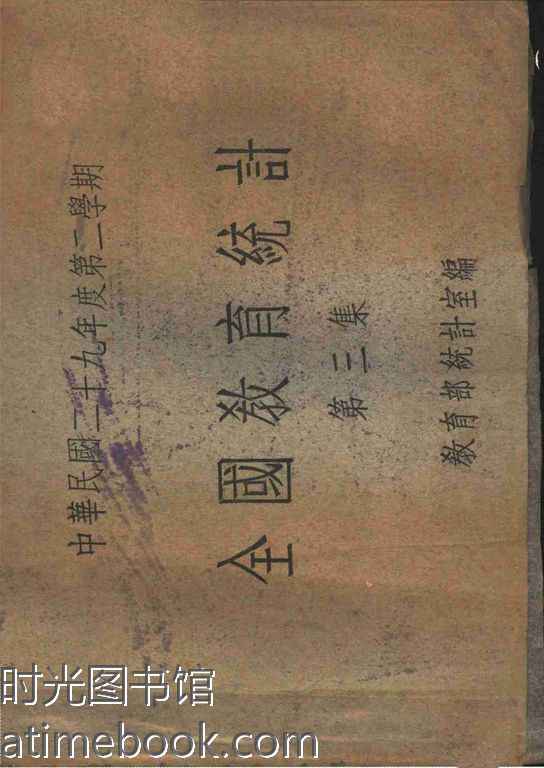 中華民國二十九年度第二學期
全國敎育統計
第三集
敎育部統計室編
时光图书馆
atimebook.com